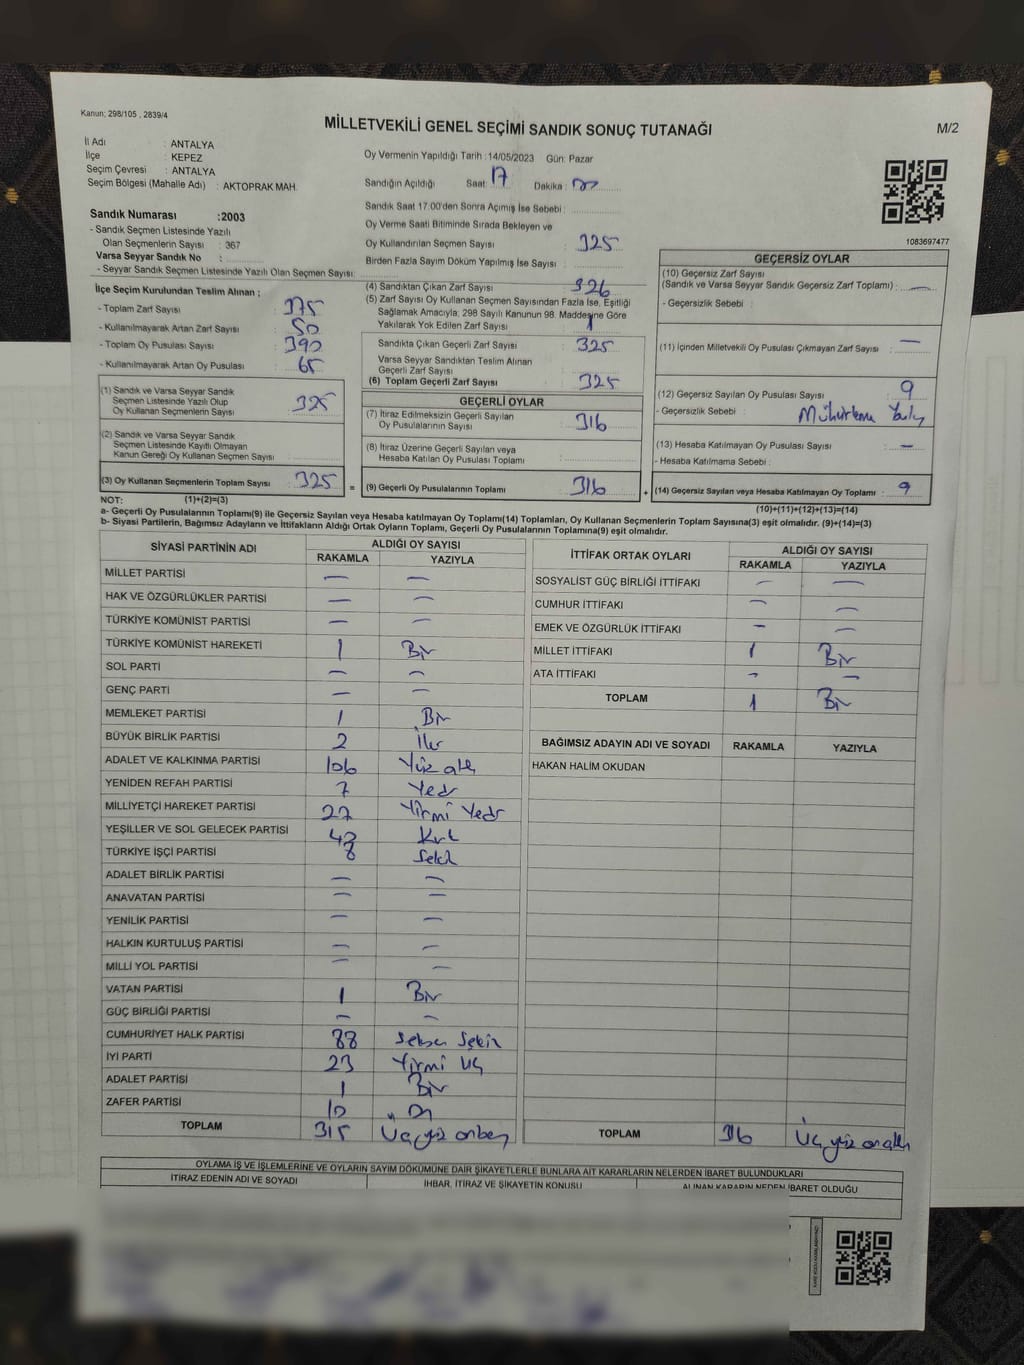 Kanun; 298/105 , 2839/4
MİLLETVEKİLİ GENEL SEÇİMİ SANDIK SONUÇ TUTANAĞI
M/2
İl Adı : ANTALYA
İlçe : KEPEZ
Seçim Çevresi : ANTALYA
Seçim Bölgesi (Mahalle Adı) : AKTOPRAK MAH.
Oy Vermenin Yapıldığı Tarih : 14/05/2023 Gün: Pazar
Sandığın Açıldığı Saat : 17 Dakika :
Sandık Saat 17:00'den Sonra Açımış İse Sebebi :
Oy Verme Saati Bitiminde Sırada Bekleyen ve
Oy Kullandırılan Seçmen Sayısı : 325
Birden Fazla Sayım Döküm Yapılmış İse Sayısı :
1083697477
Sandık Numarası :2003
- Sandık Seçmen Listesinde Yazılı
Olan Seçmenlerin Sayısı : 367
Varsa Seyyar Sandık No :
- Seyyar Sandık Seçmen Listesinde Yazılı Olan Seçmen Sayısı:
İlçe Seçim Kurulundan Teslim Alınan ;
- Toplam Zarf Sayısı : 375
- Kullanılmayarak Artan Zarf Sayısı : 50
- Toplam Oy Pusulası Sayısı : 390
- Kullanılmayarak Artan Oy Pusulası : 65
(1) Sandık ve Varsa Seyyar Sandık
Seçmen Listesinde Yazılı Olup
Oy Kullanan Seçmenlerin Sayısı : 325
(2) Sandık ve Varsa Seyyar Sandık
Seçmen Listesinde Kayıtlı Olmayan
Kanun Gereği Oy Kullanan Seçmen Sayısı :
(3) Oy Kullanan Seçmenlerin Toplam Sayısı : 325 =
(4) Sandıktan Çıkan Zarf Sayısı : 326
(5) Zarf Sayısı Oy Kullanan Seçmen Sayısından Fazla İse, Eşitliği
Sağlamak Amacıyla; 298 Sayılı Kanunun 98. Maddesine Göre
Yakılarak Yok Edilen Zarf Sayısı : 1
Sandıkta Çıkan Geçerli Zarf Sayısı : 325
Varsa Seyyar Sandıktan Teslim Alınan
Geçerli Zarf Sayısı :
(6) Toplam Geçerli Zarf Sayısı : 325
GEÇERLİ OYLAR
(7) İtiraz Edilmeksizin Geçerli Sayılan
Oy Pusulalarının Sayısı : 316
(8) İtiraz Üzerine Geçerli Sayılan veya
Hesaba Katılan Oy Pusulası Toplamı :
(9) Geçerli Oy Pusulalarının Toplamı : 316 +
GEÇERSİZ OYLAR
(10) Geçersiz Zarf Sayısı
(Sandık ve Varsa Seyyar Sandık Geçersiz Zarf Toplamı) : —
- Geçersizlik Sebebi :
(11) İçinden Milletvekili Oy Pusulası Çıkmayan Zarf Sayısı : —
(12) Geçersiz Sayılan Oy Pusulası Sayısı : 9
- Geçersizlik Sebebi :
(13) Hesaba Katılmayan Oy Pusulası Sayısı : —
- Hesaba Katılmama Sebebi :
(14) Geçersiz Sayılan veya Hesaba Katılmayan Oy Toplamı : 9
NOT: (1)+(2)=(3) (10)+(11)+(12)+(13)=(14)
a- Geçerli Oy Pusulalarının Toplamı(9) ile Geçersiz Sayılan veya Hesaba katılmayan Oy Toplamı(14) Toplamları, Oy Kullanan Seçmenlerin Toplam Sayısına(3) eşit olmalıdır. (9)+(14)=(3)
b- Siyasi Partilerin, Bağımsız Adayların ve İttifakların Aldığı Ortak Oyların Toplamı, Geçerli Oy Pusulalarının Toplamına(9) eşit olmalıdır.
SİYASİ PARTİNİN ADI ALDIĞI OY SAYISI
RAKAMLA YAZIYLA
MİLLET PARTİSİ — —
HAK VE ÖZGÜRLÜKLER PARTİSİ — —
TÜRKİYE KOMÜNİST PARTİSİ — —
TÜRKİYE KOMÜNİST HAREKETİ 1 Bir
SOL PARTİ — —
GENÇ PARTİ — —
MEMLEKET PARTİSİ 1 Bir
BÜYÜK BİRLİK PARTİSİ 2 İki
ADALET VE KALKINMA PARTİSİ 106 Yüz altı
YENİDEN REFAH PARTİSİ 7 Yedi
MİLLİYETÇİ HAREKET PARTİSİ 27 Yirmi Yedi
YEŞİLLER VE SOL GELECEK PARTİSİ Kırk
TÜRKİYE İŞÇİ PARTİSİ 8 Sekiz
ADALET BİRLİK PARTİSİ — —
ANAVATAN PARTİSİ — —
YENİLİK PARTİSİ — —
HALKIN KURTULUŞ PARTİSİ — —
MİLLİ YOL PARTİSİ — —
VATAN PARTİSİ 1 Bir
GÜÇ BİRLİĞİ PARTİSİ — —
CUMHURİYET HALK PARTİSİ 88 Seksen Sekiz
İYİ PARTİ 23 Yirmi üç
ADALET PARTİSİ 1 Bir
ZAFER PARTİSİ 10 On
TOPLAM 315 Üçyüz onbeş
İTTİFAK ORTAK OYLARI ALDIĞI OY SAYISI
RAKAMLA YAZIYLA
SOSYALİST GÜÇ BİRLİĞİ İTTİFAKI — —
CUMHUR İTTİFAKI — —
EMEK VE ÖZGÜRLÜK İTTİFAKI — —
MİLLET İTTİFAKI 1 Bir
ATA İTTİFAKI — —
TOPLAM 1 Bir
BAĞIMSIZ ADAYIN ADI VE SOYADI RAKAMLA YAZIYLA
HAKAN HALİM OKUDAN
TOPLAM 316 Üçyüz onaltı
OYLAMA İŞ VE İŞLEMLERİNE VE OYLARIN SAYIM DÖKÜMÜNE DAİR ŞİKAYETLERLE BUNLARA AİT KARARLARIN NELERDEN İBARET BULUNDUKLARI
İTİRAZ EDENİN ADI VE SOYADI İHBAR, İTİRAZ VE ŞİKAYETİN KONUSU ALINAN KARARIN NEDEN İBARET OLDUĞU